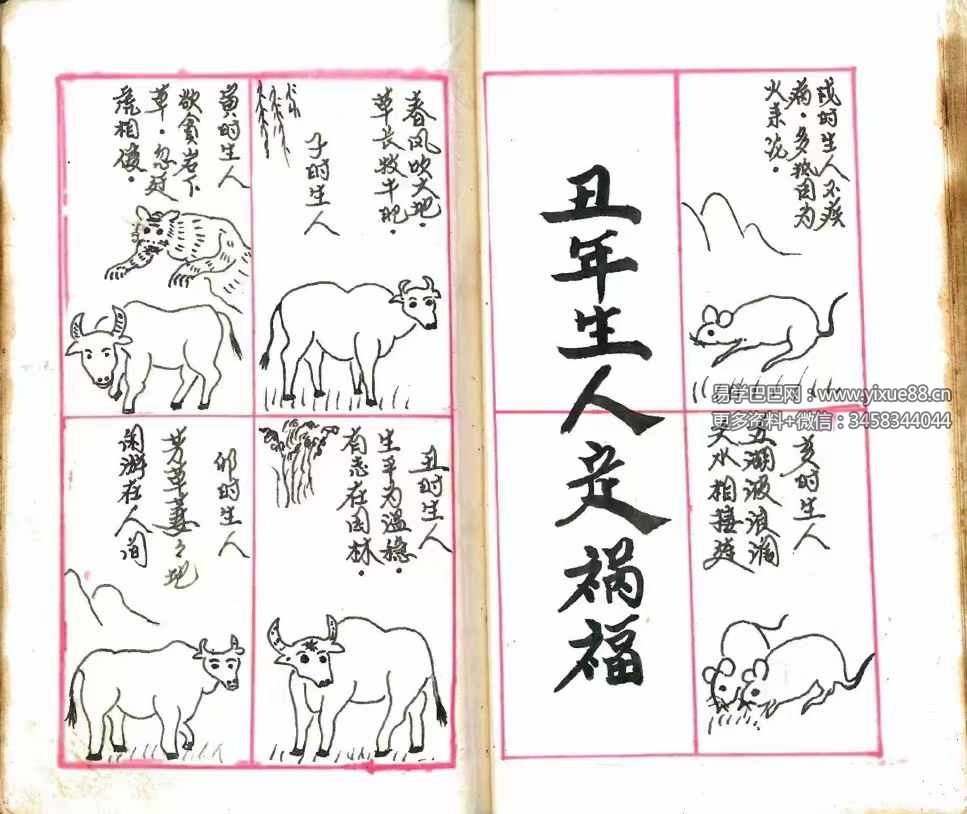 戌时生人不疾
病.多抵因为
火来
亥时生人
五湖波浪涌
天水相接连
丑年生人走祸福
春风吹大地.
草长牧牛肥.
子时生人
丑时生人
生平为温稳.
有志在园林.
寅时生人
欲贪岩下
草.忽对
虎相侵.
卯时生人
芳草萋々地
闲游在人间
易学巴巴网：www.yixue88.cn
更多资料+微信：3458344044